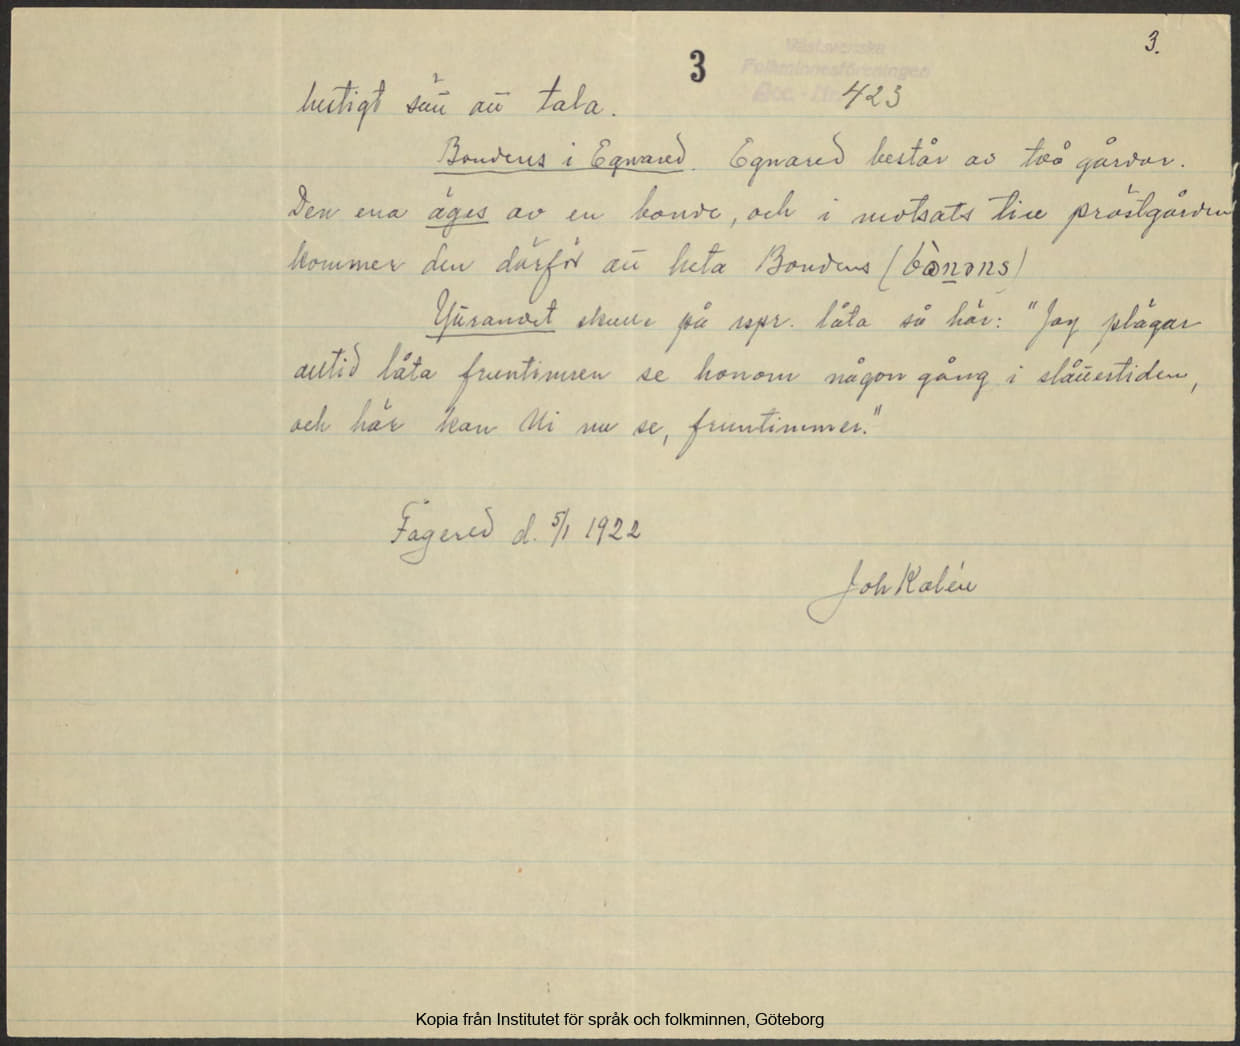 3.
3
Västsvenska
Folkminnesföreningen
Acc. - Nr 423
hestigt sätt att tala.
Bondens i Egnared. Egnared består av två gårdar.
Den ena äges av en bonde, och i motsats till prästgården
kommer den därför att heta Bondens (bònəns)
Yttrandet skulle på rspr. låta så här: "Jag plägar
alltid låta fruntimren se honom någon gång i slåttertiden,
och här kan Ni nu se, fruntimmer."
Fagered d. 5/1 1922
Joh Kalén
Kopia från Institutet för språk och folkminnen, Göteborg